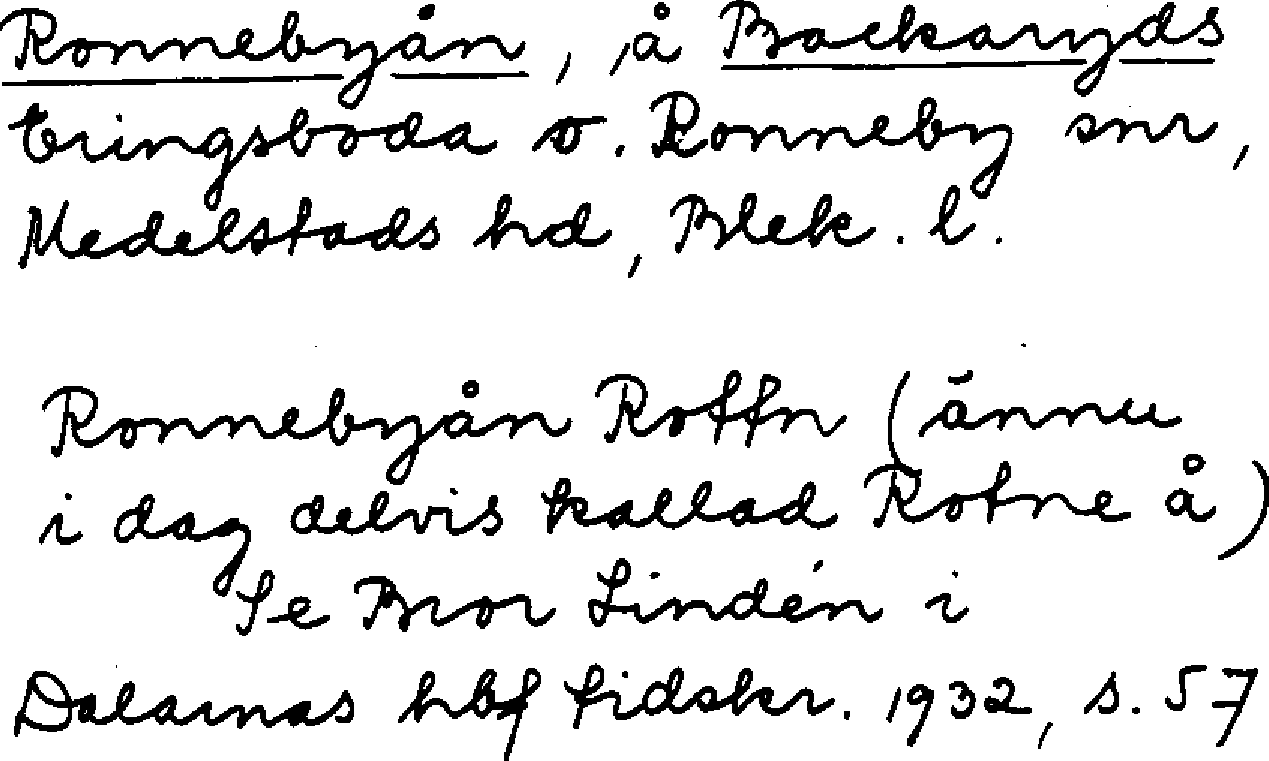 Ronnebyån, å Backaryds
Eringsboda o. Ronneby snr,
Medelstads hd, Blek. l.
Ronnebyån Rottn (ännu
i dag delvis kallad Rotne å)
Se Bror Lindén i
Dalarnas hbf tidskr. 1932, s. 57